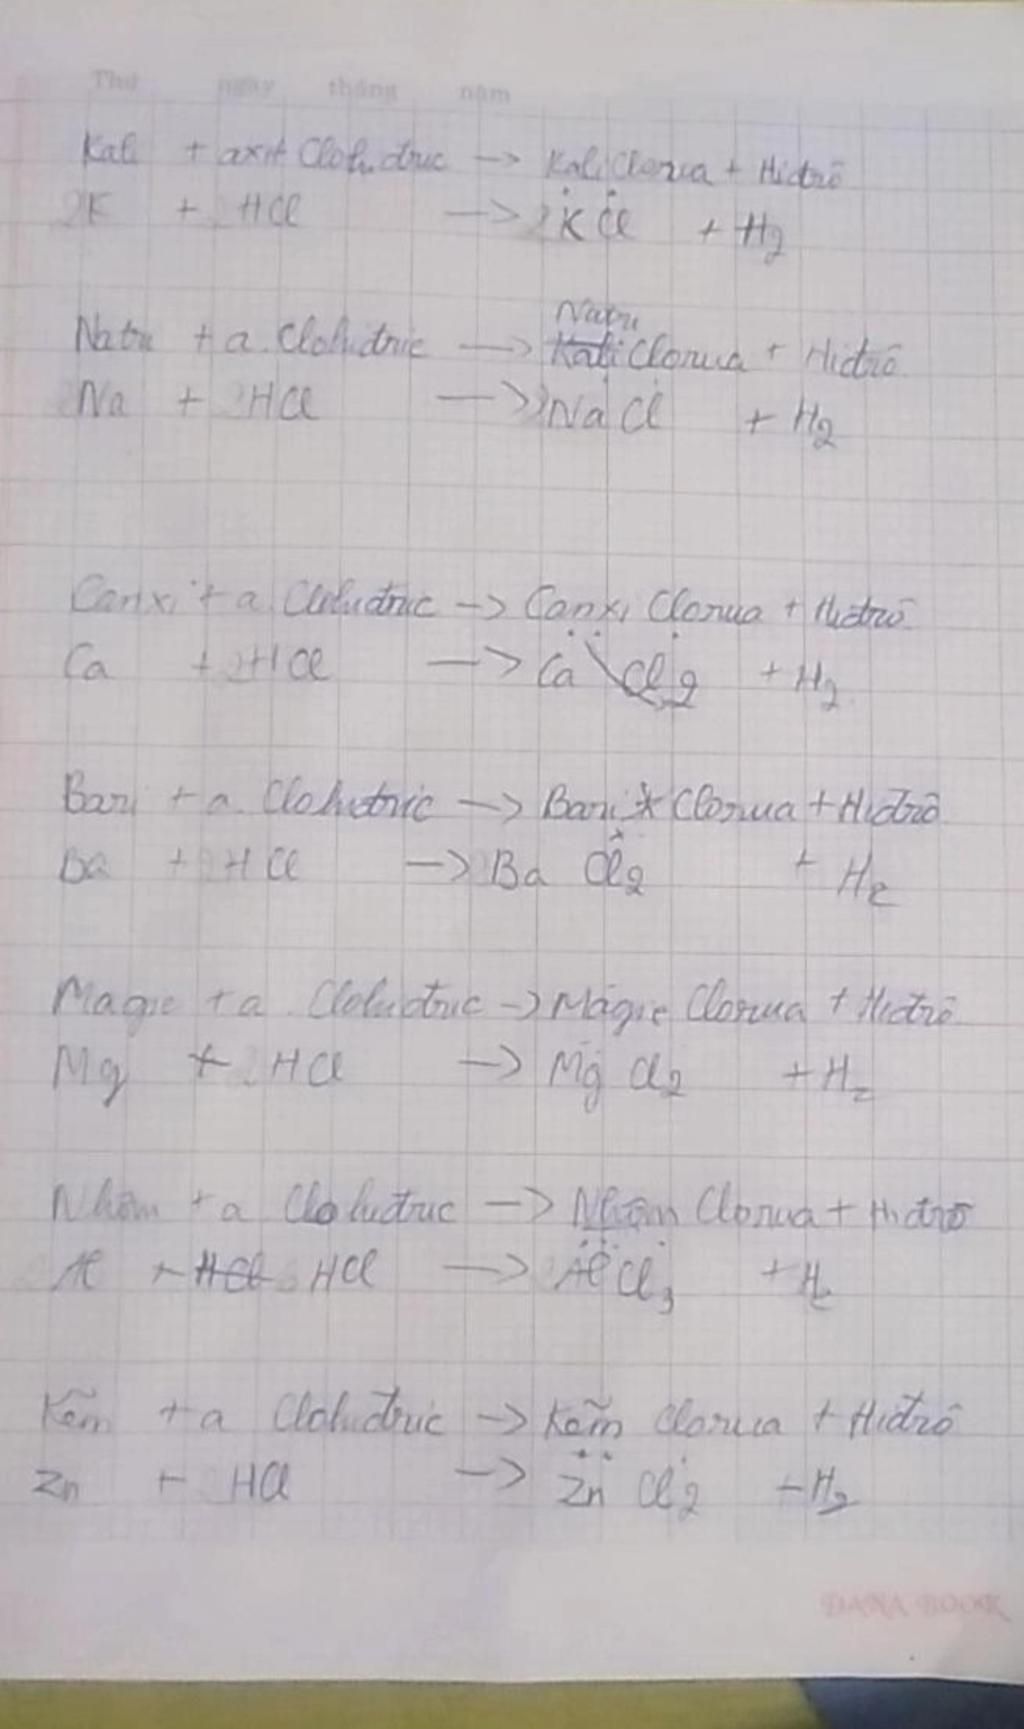 Thứ ngày tháng năm
Kali + axit Clohidric -> Kali Clorua + Hidrô
2K + 2HCl -> 2KCl + H2
Natri
Natri + a. Clohidric -> Kali Clorua + Hidrô
2Na + 2HCl -> 2NaCl + H2
Canxi + a Clohidric -> Canxi Clorua + Hidrô
Ca + 2HCl -> CaCl2 + H2
Bari + a. Clohidric -> Bari Clorua + Hidrô
Ba + 2HCl -> BaCl2 + H2
Magie + a Clohidric -> Magie Clorua + Hidrô
Mg + 2HCl -> MgCl2 + H2
Nhôm + a Clohidric -> Nhôm Clorua + Hidrô
Al + HCl HCl -> AlCl3 + H2
Kẽm + a Clohidric -> Kẽm Clorua + Hidrô
Zn + HCl -> ZnCl2 + H2
DANA BOOK